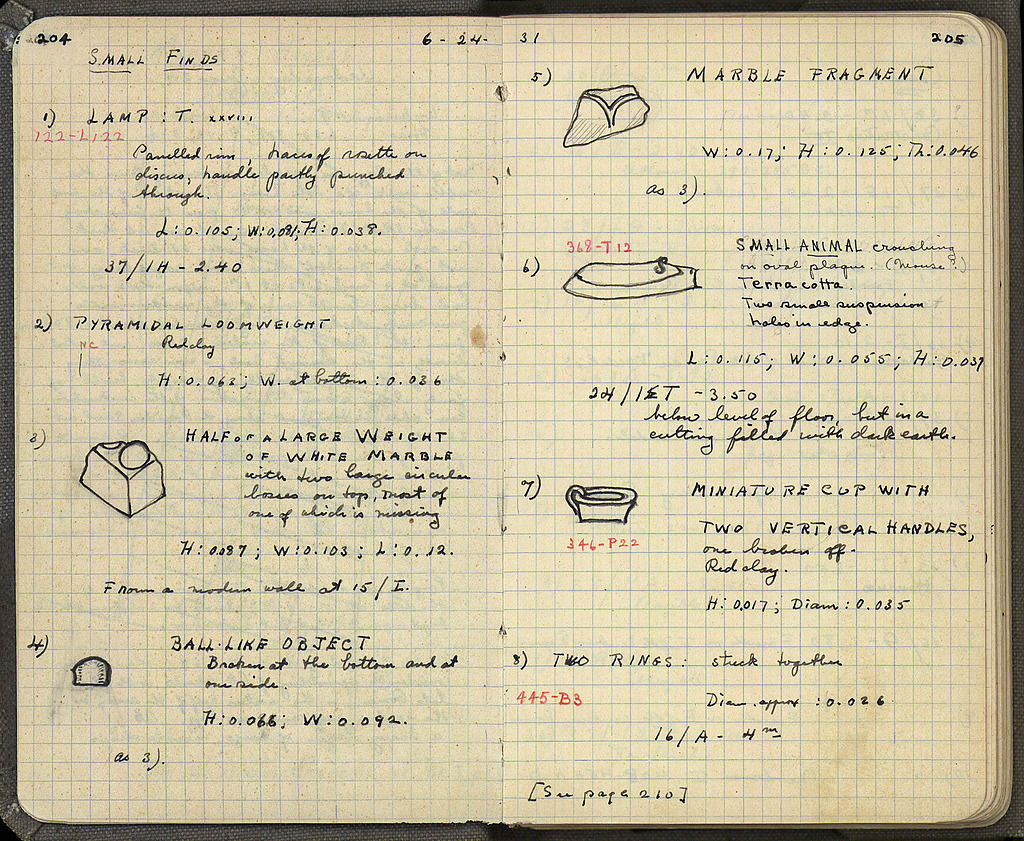 204
6 - 24 -
SMALL FINDS
1) LAMP : T. XXVIII
122-L122
Panelled rim, traces of rosette on
discus, handle partly punched
through.
L: 0.105; W: 0.081; H: 0.038.
37/IH - 2.40
2) PYRAMIDAL LOOMWEIGHT
NC
Red clay
H: 0.063; W. at bottom: 0.036
3) HALF OF A LARGE WEIGHT
OF WHITE MARBLE
with two large circular
bosses on top, most of
one of which is missing
H: 0.087; W: 0.103; L: 0.12.
From a modern wall at 15/I.
4) BALL-LIKE OBJECT
Broken at the bottom and at
one side.
H: 0.066; W: 0.092.
as 3).
31
205
5) MARBLE FRAGMENT
W: 0.17; H: 0.125; Th: 0.046
as 3).
368-T12
6) SMALL ANIMAL crouching
on oval plaque. (Mouse?)
Terra cotta.
Two small suspension
holes in edge.
L: 0.115; W: 0.055; H: 0.039
24/IET - 3.50
below level of floor, but in a
cutting filled with dark earth.
7) MINIATURE CUP WITH
TWO VERTICAL HANDLES,
346-P22
one broken off.
Red clay.
H: 0.017; Diam: 0.035
8) TWO RINGS: stuck together
445-B3
Diam. approx: 0.026
16/A - 4m
[See page 210]